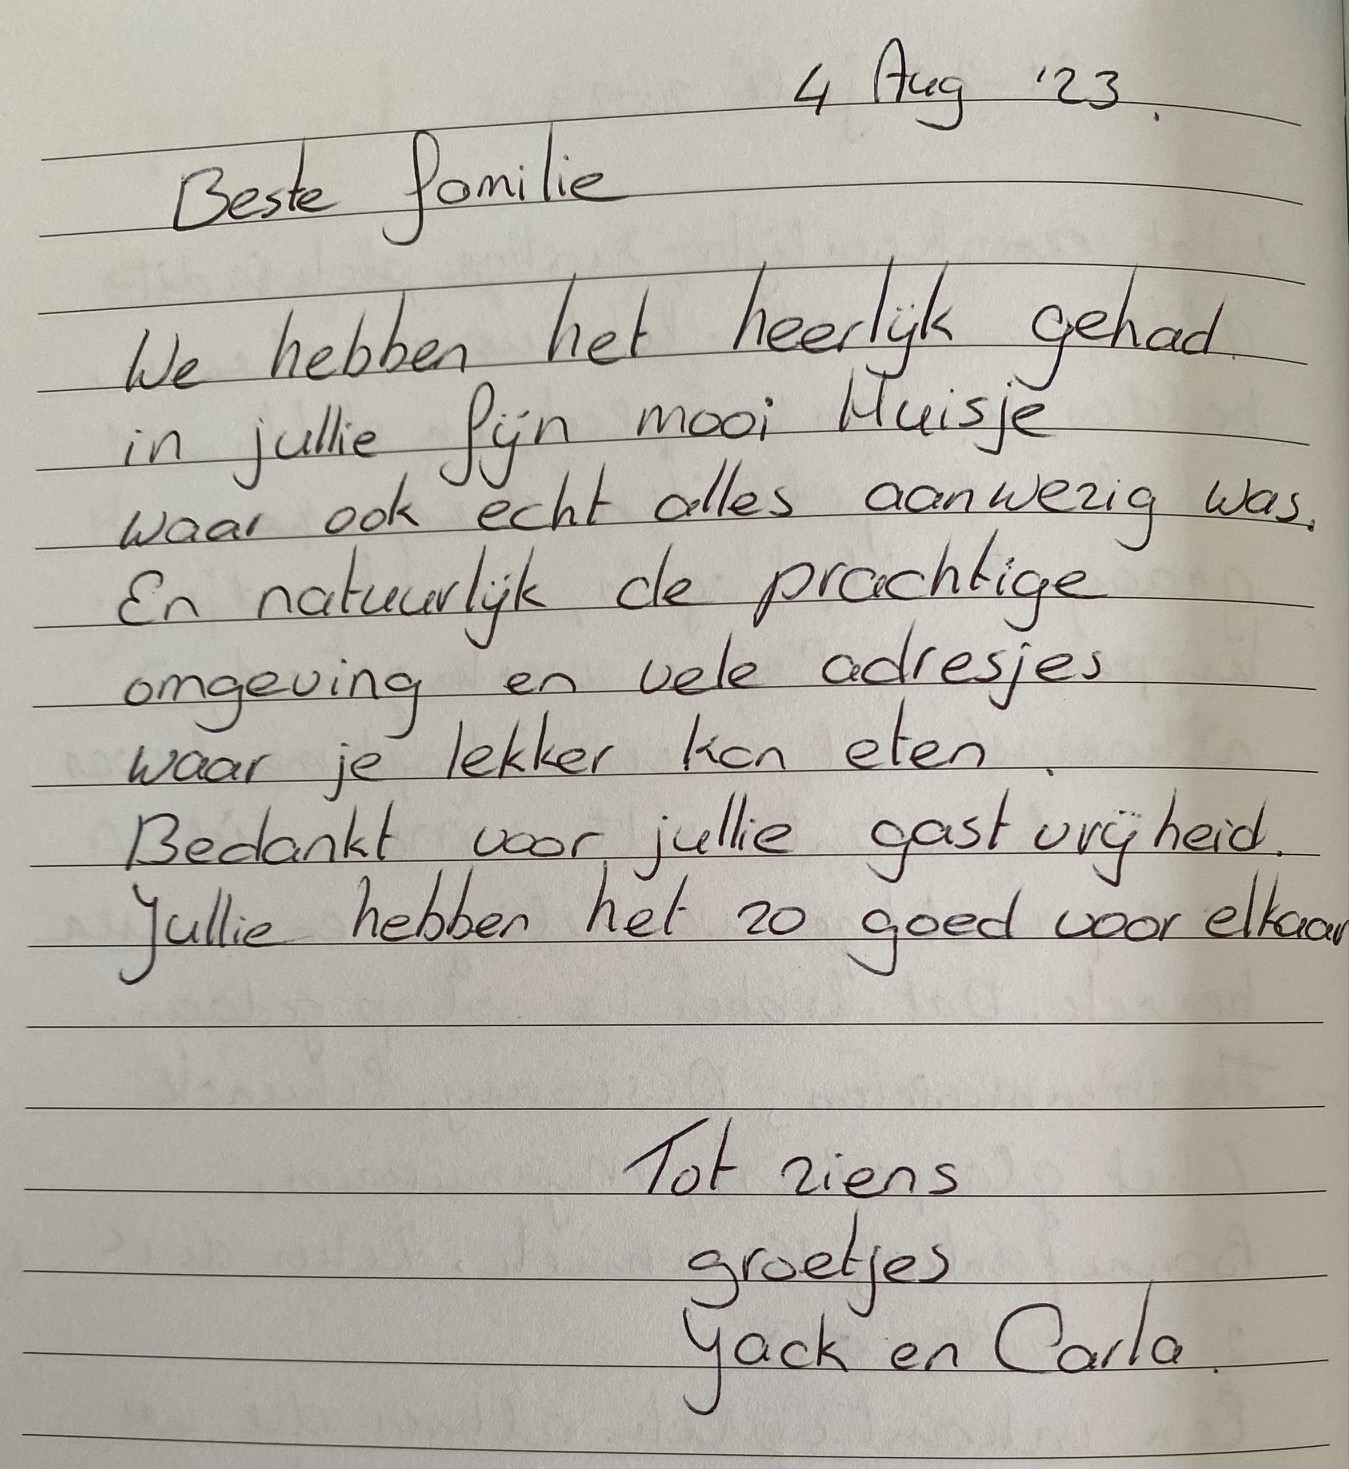 4 Aug '23.
Beste familie
We hebben het heerlijk gehad
in jullie fijn mooi Huisje
waar ook echt alles aanwezig was.
En natuurlijk de prachtige
omgeving en vele adresjes
waar je lekker kan eten.
Bedankt voor jullie gastvrijheid.
Jullie hebben het zo goed voor elkaar
Tot ziens
groetjes
Jack en Carla.